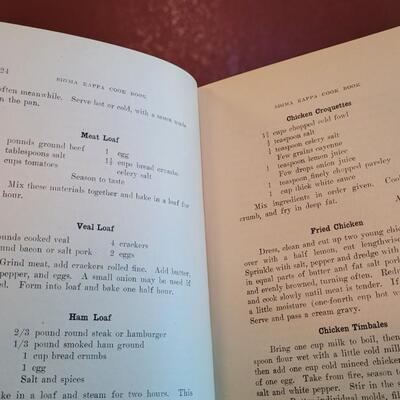 24 SIGMA KAPPA COOK BOOK
often meanwhile. Serve hot or cold, with a sauce made
n the pan.
Meat Loaf
pounds ground beef 1 egg
tablespoons salt 1½ cups bread crumbs
cups tomatoes celery salt
Season to taste
Mix these materials together and bake in a loaf for
hour.
Veal Loaf
ounds cooked veal 4 crackers
ound bacon or salt pork 2 eggs
Grind meat, add crackers rolled fine. Add butter,
pepper, and eggs. A small onion may be used if
ed. Form into loaf and bake one half hour.
Ham Loaf
2/3 pound round steak or hamburger
1/3 pound smoked ham ground
1 cup bread crumbs
1 egg
Salt and spices
ke in a loaf and steam for two hours. This
SIGMA KAPPA COOK BOOK
Chicken Croquettes
cups chopped cold fowl
teaspoon salt
teaspoon celery salt
Few grains cayenne
1 teaspoon lemon juice
Few drops onion juice
1 teaspoon finely chopped parsley
1 cup thick white sauce
Mix ingredients in order given. Cool
crumb, and fry in deep fat.
Fried Chicken
Dress, clean and cut up two young chic
over with a half lemon, cut lengthwise
Sprinkle with salt, pepper and dredge with
in equal parts of butter and fat salt pork
and evenly browned, turning often. Red
and cook slowly until meat is tender. If
a little moisture (one-fourth cup hot w
Serve and pass a cream gravy.
Chicken Timbales
Bring one cup milk to boil, then
spoon flour wet with a little cold mill
then add one cup cold minced chicken
of one egg. Take from fire, season to
and white pepper. Stir in the s
individual molds, fil